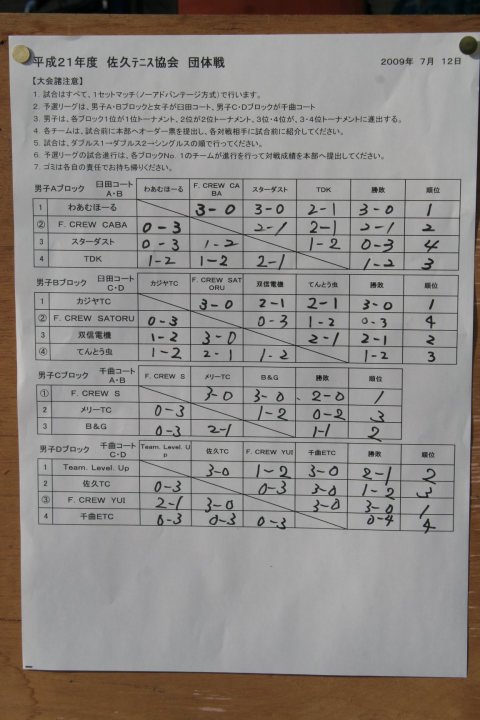 平成21年度 佐久テニス協会 団体戦 2009年 7月 12日
【大会諸注意】
1. 試合はすべて、1セットマッチ(ノーアドバンテージ方式)で行います。
2. 予選リーグは、男子A・Bブロックと女子が臼田コート、男子C・Dブロックが千曲コート
3. 男子は、各ブロック1位が1位トーナメント、2位が2位トーナメント、3位・4位が、3・4位トーナメントに進出する。
4. 各チームは、試合前に本部へオーダー票を提出し、各対戦相手に試合前に紹介してください。
5. 試合は、ダブルス1→ダブルス2→シングルスの順で行ってください。
6. 予選リーグの試合進行は、各ブロックNo. 1のチームが進行を行って対戦成績を本部へ提出してください。
7. ゴミは各自の責任でお持ち帰りください。
男子Aブロック 臼田コート A・B わあむほーる F. CREW CABA スターダスト TDK 勝敗 順位
1 わあむほーる 3-0 3-0 2-1 3-0 1
② F. CREW CABA 0-3 2-1 2-1 2-1 2
3 スターダスト 0-3 1-2 1-2 0-3 4
4 TDK 1-2 1-2 2-1 1-2 3
男子Bブロック 臼田コート C・D カジヤTC F. CREW SATORU 双信電機 てんとう虫 勝敗 順位
1 カジヤTC 3-0 2-1 2-1 3-0 1
② F. CREW SATORU 0-3 0-3 1-2 0-3 4
3 双信電機 1-2 3-0 2-1 2-1 2
④ てんとう虫 1-2 2-1 1-2 1-2 3
男子Cブロック 千曲コート A・B F. CREW S メリーTC B&G 勝敗 順位
① F. CREW S 3-0 3-0 2-0 1
2 メリーTC 0-3 1-2 0-2 3
3 B&G 0-3 2-1 1-1 2
男子Dブロック 千曲コート C・D Team. Level. Up 佐久TC F. CREW YUI 千曲ETC 勝敗 順位
1 Team. Level. Up 3-0 1-2 3-0 2-1 2
2 佐久TC 0-3 0-3 3-0 1-2 3
③ F. CREW YUI 2-1 3-0 3-0 3-0 1
4 千曲ETC 0-3 0-3 0-3 0-4 4